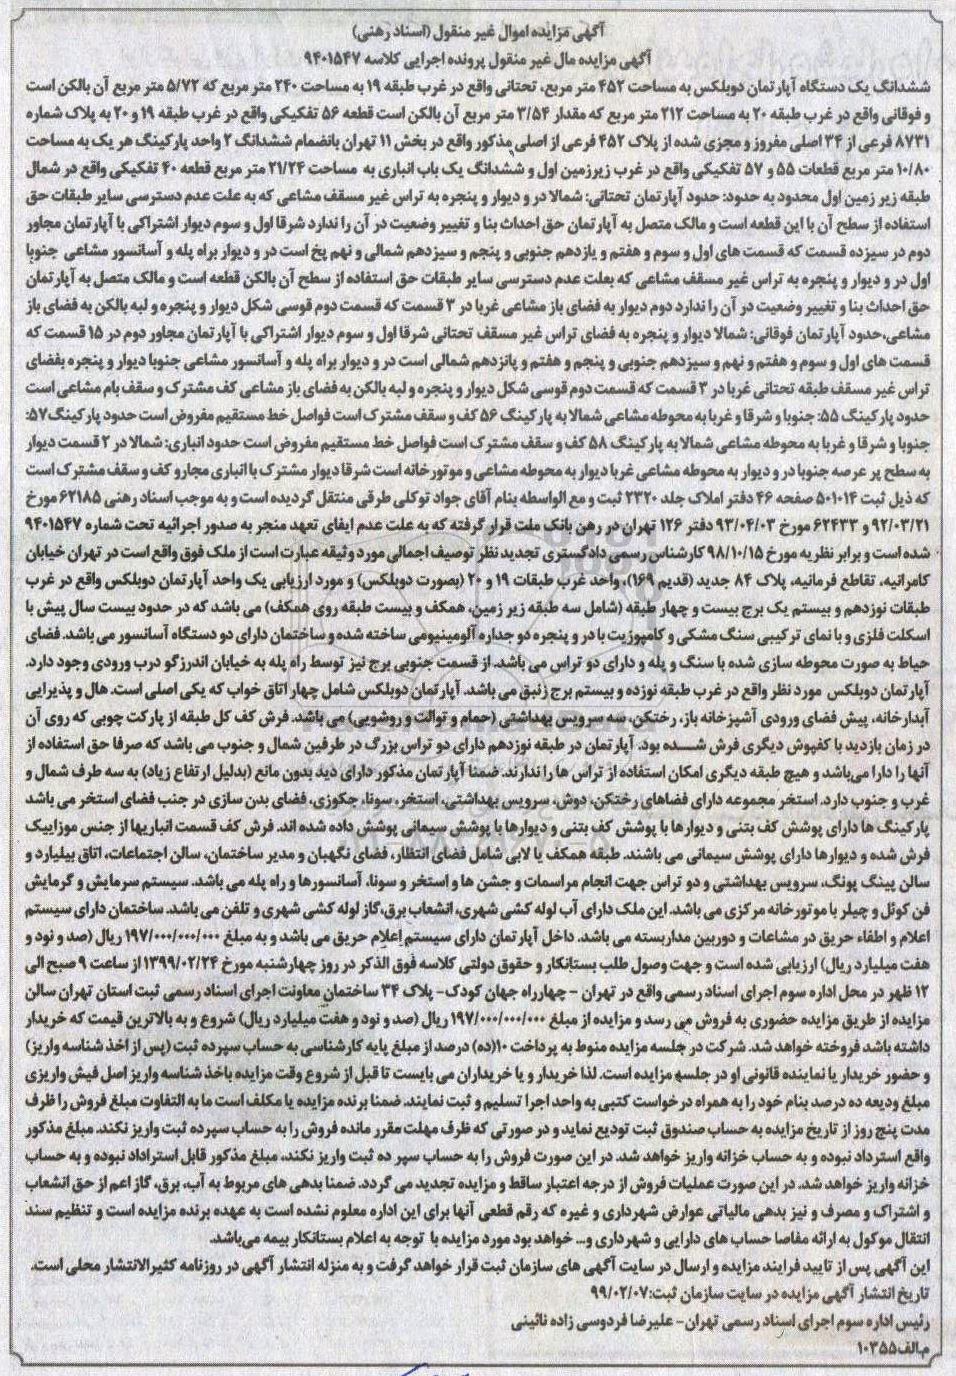 آگهی مزایده اموال غیر منقول (اسناد رهنی)
آگهی مزایده مال غیر منقول پرونده اجرایی کلاسه ۹۴۰۱۵۴۷
ششدانگ یک دستگاه آپارتمان دوبلکس به مساحت ۴۵۲ متر مربع، تحتانی واقع در غرب طبقه ۱۹ به مساحت ۲۴۰ متر مربع که ۵/۷۲ متر مربع آن بالکن است
و فوقانی واقع در غرب طبقه ۲۰ به مساحت ۲۱۲ متر مربع که مقدار ۳/۵۴ متر مربع آن بالکن است قطعه ۵۶ تفکیکی واقع در غرب طبقه ۱۹ و ۲۰ به پلاک شماره
۸۷۳۱ فرعی از ۳۴ اصلی مفروز و مجزی شده از پلاک ۴۵۲ فرعی از اصلی مذکور واقع در بخش ۱۱ تهران بانضمام ششدانگ ۲ واحد پارکینگ هر یک به مساحت
۱۰/۸۰ متر مربع قطعات ۵۵ و ۵۷ تفکیکی واقع در غرب زیرزمین اول و ششدانگ یک باب انباری به مساحت ۲۱/۲۴ متر مربع قطعه ۴۰ تفکیکی واقع در شمال
طبقه زیر زمین اول محدود به حدود: حدود آپارتمان تحتانی: شمالا در و دیوار و پنجره به تراس غیر مسقف مشاعی که به علت عدم دسترسی سایر طبقات حق
استفاده از سطح آن با این قطعه است و مالک متصل به آپارتمان حق احداث بنا و تغییر وضعیت در آن را ندارد شرقا اول و سوم دیوار اشتراکی با آپارتمان مجاور
دوم در سیزده قسمت که قسمت های اول و سوم و هفتم و یازدهم جنوبی و پنجم و سیزدهم شمالی و نهم پخ است در و دیوار براه پله و آسانسور مشاعی جنوبا
اول در و دیوار و پنجره به تراس غیر مسقف مشاعی که بعلت عدم دسترسی سایر طبقات حق استفاده از سطح آن بالکن قطعه است و مالک متصل به آپارتمان
حق احداث بنا و تغییر وضعیت در آن را ندارد دوم دیوار به فضای باز مشاعی غربا در ۳ قسمت که قسمت دوم قوسی شکل دیوار و پنجره و لبه بالکن به فضای باز
مشاعی،حدود آپارتمان فوقانی: شمالا دیوار و پنجره به فضای تراس غیر مسقف تحتانی شرقا اول و سوم دیوار اشتراکی با آپارتمان مجاور دوم در ۱۵ قسمت که
قسمت های اول و سوم و هفتم و نهم و سیزدهم جنوبی و پنجم و هفتم و پانزدهم شمالی است در و دیوار براه پله و آسانسور مشاعی جنوبا دیوار و پنجره بفضای
تراس غیر مسقف طبقه تحتانی غربا در ۳ قسمت که قسمت دوم قوسی شکل دیوار و پنجره و لبه بالکن به فضای باز مشاعی کف مشترک و سقف بام مشاعی است
حدود پارکینگ ۵۵: جنوبا و شرقا و غربا به محوطه مشاعی شمالا به پارکینگ ۵۶ کف و سقف مشترک است فواصل خط مستقیم مفروض است حدود پارکینگ ۵۷:
جنوبا و شرقا و غربا به محوطه مشاعی شمالا به پارکینگ ۵۸ کف و سقف مشترک است فواصل خط مستقیم مفروض است حدود انباری: شمالا در ۲ قسمت دیوار
به سطح پر عرصه جنوبا در و دیوار به محوطه مشاعی غربا دیوار به محوطه مشاعی و موتور خانه است شرقا دیوار مشترک با انباری مجارو کف و سقف مشترک است
که ذیل ثبت ۵۰۱۰۱۴ صفحه ۴۶ دفتر املاک جلد ۲۳۲۰ ثبت و مع الواسطه بنام آقای جواد توکلی طرقی منتقل گردیده است و به موجب اسناد رهنی ۶۲۱۸۵ مورخ
۹۲/۰۳/۲۱ و ۶۲۴۳۳ مورخ ۹۳/۰۴/۰۳ دفتر ۱۲۶ تهران در رهن بانک ملت قرار گرفته که به علت عدم ایفای تعهد منجر به صدور اجرائیه تحت شماره ۹۴۰۱۵۴۷
شده است و برابر نظریه مورخ ۹۸/۱۰/۱۵ کارشناس رسمی دادگستری تجدید نظر توصیف اجمالی مورد وثیقه عبارت است از ملک فوق واقع است در تهران خیابان
کامرانیه، تقاطع فرمانیه، پلاک ۸۴ جدید (قدیم ۱۶۹)، واحد غرب طبقات ۱۹ و ۲۰ (بصورت دوبلکس) و مورد ارزیابی یک واحد آپارتمان دوبلکس واقع در غرب
طبقات نوزدهم و بیستم یک برج بیست و چهار طبقه (شامل سه طبقه زیر زمین، همکف و بیست طبقه روی همکف) می باشد که در حدود بیست سال پیش با
اسکلت فلزی و با نمای ترکیبی سنگ مشکی و کامپوزیت با در و پنجره دو جداره آلومینیومی ساخته شده و ساختمان دارای دو دستگاه آسانسور می باشد. فضای
حیاط به صورت محوطه سازی شده با سنگ و پله و دارای دو تراس می باشد. از قسمت جنوبی برج نیز توسط راه پله به خیابان اندرزگو درب ورودی وجود دارد.
آپارتمان دوبلکس مورد نظر واقع در غرب طبقه نوزده و بیستم برج زنبق می باشد. آپارتمان دوبلکس شامل چهار اتاق خواب که یکی اصلی است. هال و پذیرایی
آبدارخانه، پیش فضای ورودی آشپزخانه باز، رختکن، سه سرویس بهداشتی (حمام و توالت و روشویی) می باشد. فرش کف کل طبقه از پارکت چوبی که روی آن
در زمان بازدید با کفپوش دیگری فرش شده بود. آپارتمان در طبقه نوزدهم دارای دو تراس بزرگ در طرفین شمال و جنوب می باشد که صرفا حق استفاده از
آنها را دارا می‌باشد و هیچ طبقه دیگری امکان استفاده از تراس ها را ندارند. ضمنا آپارتمان مذکور دارای دید بدون مانع (بدلیل ارتفاع زیاد) به سه طرف شمال و
غرب و جنوب دارد. استخر مجموعه دارای فضاهای رختکن، دوش، سرویس بهداشتی، استخر، سونا، جکوزی، فضای بدن سازی در جنب فضای استخر می باشد
پارکینگ ها دارای پوشش کف بتنی و دیوارها با پوشش کف بتنی و دیوارها با پوشش سیمانی پوشش داده شده اند. فرش کف قسمت انباریها از جنس موزاییک
فرش شده و دیوارها دارای پوشش سیمانی می باشند. طبقه همکف با لابی شامل فضای انتظار، فضای نگهبان و مدیر ساختمان، سالن اجتماعات، اتاق بیلیارد و
سالن پینگ پونگ، سرویس بهداشتی و دو تراس جهت انجام مراسمات و جشن ها و استخر و سونا، آسانسورها و راه پله می باشد. سیستم سرمایش و گرمایش
فن کوئل و چیلر با موتورخانه مرکزی می باشد. این ملک دارای آب لوله کشی شهری، انشعاب برق،گاز لوله کشی شهری و تلفن می باشد. ساختمان دارای سیستم
اعلام و اطفاء حریق در مشاعات و دوربین مداربسته می باشد. داخل آپارتمان دارای سیستم اعلام حریق می باشد و به مبلغ ۱۹۷/۰۰۰/۰۰۰/۰۰۰ ریال (صد و نود و
هفت میلیارد ریال) ارزیابی شده است و جهت وصول طلب بستانکار و حقوق دولتی کلاسه فوق الذکر در روز چهارشنبه مورخ ۱۳۹۹/۰۲/۲۴ از ساعت ۹ صبح الی
۱۲ ظهر در محل اداره سوم اجرای اسناد رسمی واقع در تهران - چهارراه جهان کودک- پلاک ۳۴ ساختمان معاونت اجرای اسناد رسمی ثبت استان تهران سالن
مزایده از طریق مزایده حضوری به فروش می رسد و مزایده از مبلغ ۱۹۷/۰۰۰/۰۰۰/۰۰۰ ریال (صد و نود و هفت میلیارد ریال) شروع و به بالاترین قیمت که خریدار
داشته باشد فروخته خواهد شد. شرکت در جلسه مزایده منوط به پرداخت ۱۰(ده) درصد از مبلغ پایه کارشناسی به حساب سپرده ثبت (پس از اخذ شناسه واریز)
و حضور خریدار یا نماینده قانونی او در جلسه مزایده است. لذا خریدار و یا خریداران می بایست تا قبل از شروع وقت مزایده باخذ شناسه واریز اصل فیش واریزی
مبلغ ودیعه ده درصد بنام خود را به همراه درخواست کتبی به واحد اجرا تسلیم و ثبت نمایند. ضمنا برنده مزایده با مکلف است ما به التفاوت مبلغ فروش را ظرف
مدت پنج روز از تاریخ مزایده به حساب صندوق ثبت تودیع نماید و در صورتی که ظرف مهلت مقرر مانده فروش را به حساب سپرده ثبت واریز نکند. مبلغ مذکور
واقع استرداد نبوده و به حساب خزانه واریز خواهد شد. در این صورت فروش را به حساب سپر ده ثبت واریز نکند، مبلغ مذکور قابل استراداد نبوده و به حساب
خزانه واریز خواهد شد. در این صورت عملیات فروش از درجه اعتبار ساقط و مزایده تجدید می گردد. ضمنا بدهی های مربوط به آب، برق، گاز اعم از حق انشعاب
و اشتراک و مصرف و نیز بدهی مالیاتی عوارض شهرداری و غیره که رقم قطعی آنها برای این اداره معلوم نشده است به عهده برنده مزایده است و تنظیم سند
انتقال موکول به ارائه مفاصا حساب های دارایی و شهرداری و... خواهد بود مورد مزایده با توجه به اعلام بستانکار بیمه می‌باشد.
این آگهی پس از تایید فرایند مزایده و ارسال در سایت آگهی های سازمان ثبت قرار خواهد گرفت و به منزله انتشار آگهی در روزنامه کثیرالانتشار محلی است.
تاریخ انتشار آگهی مزایده در سایت سازمان ثبت:۹۹/۰۲/۰۷
رئیس اداره سوم اجرای اسناد رسمی تهران- علیرضا فردوسی زاده نائینی
م.الف۱۰۳۵۵